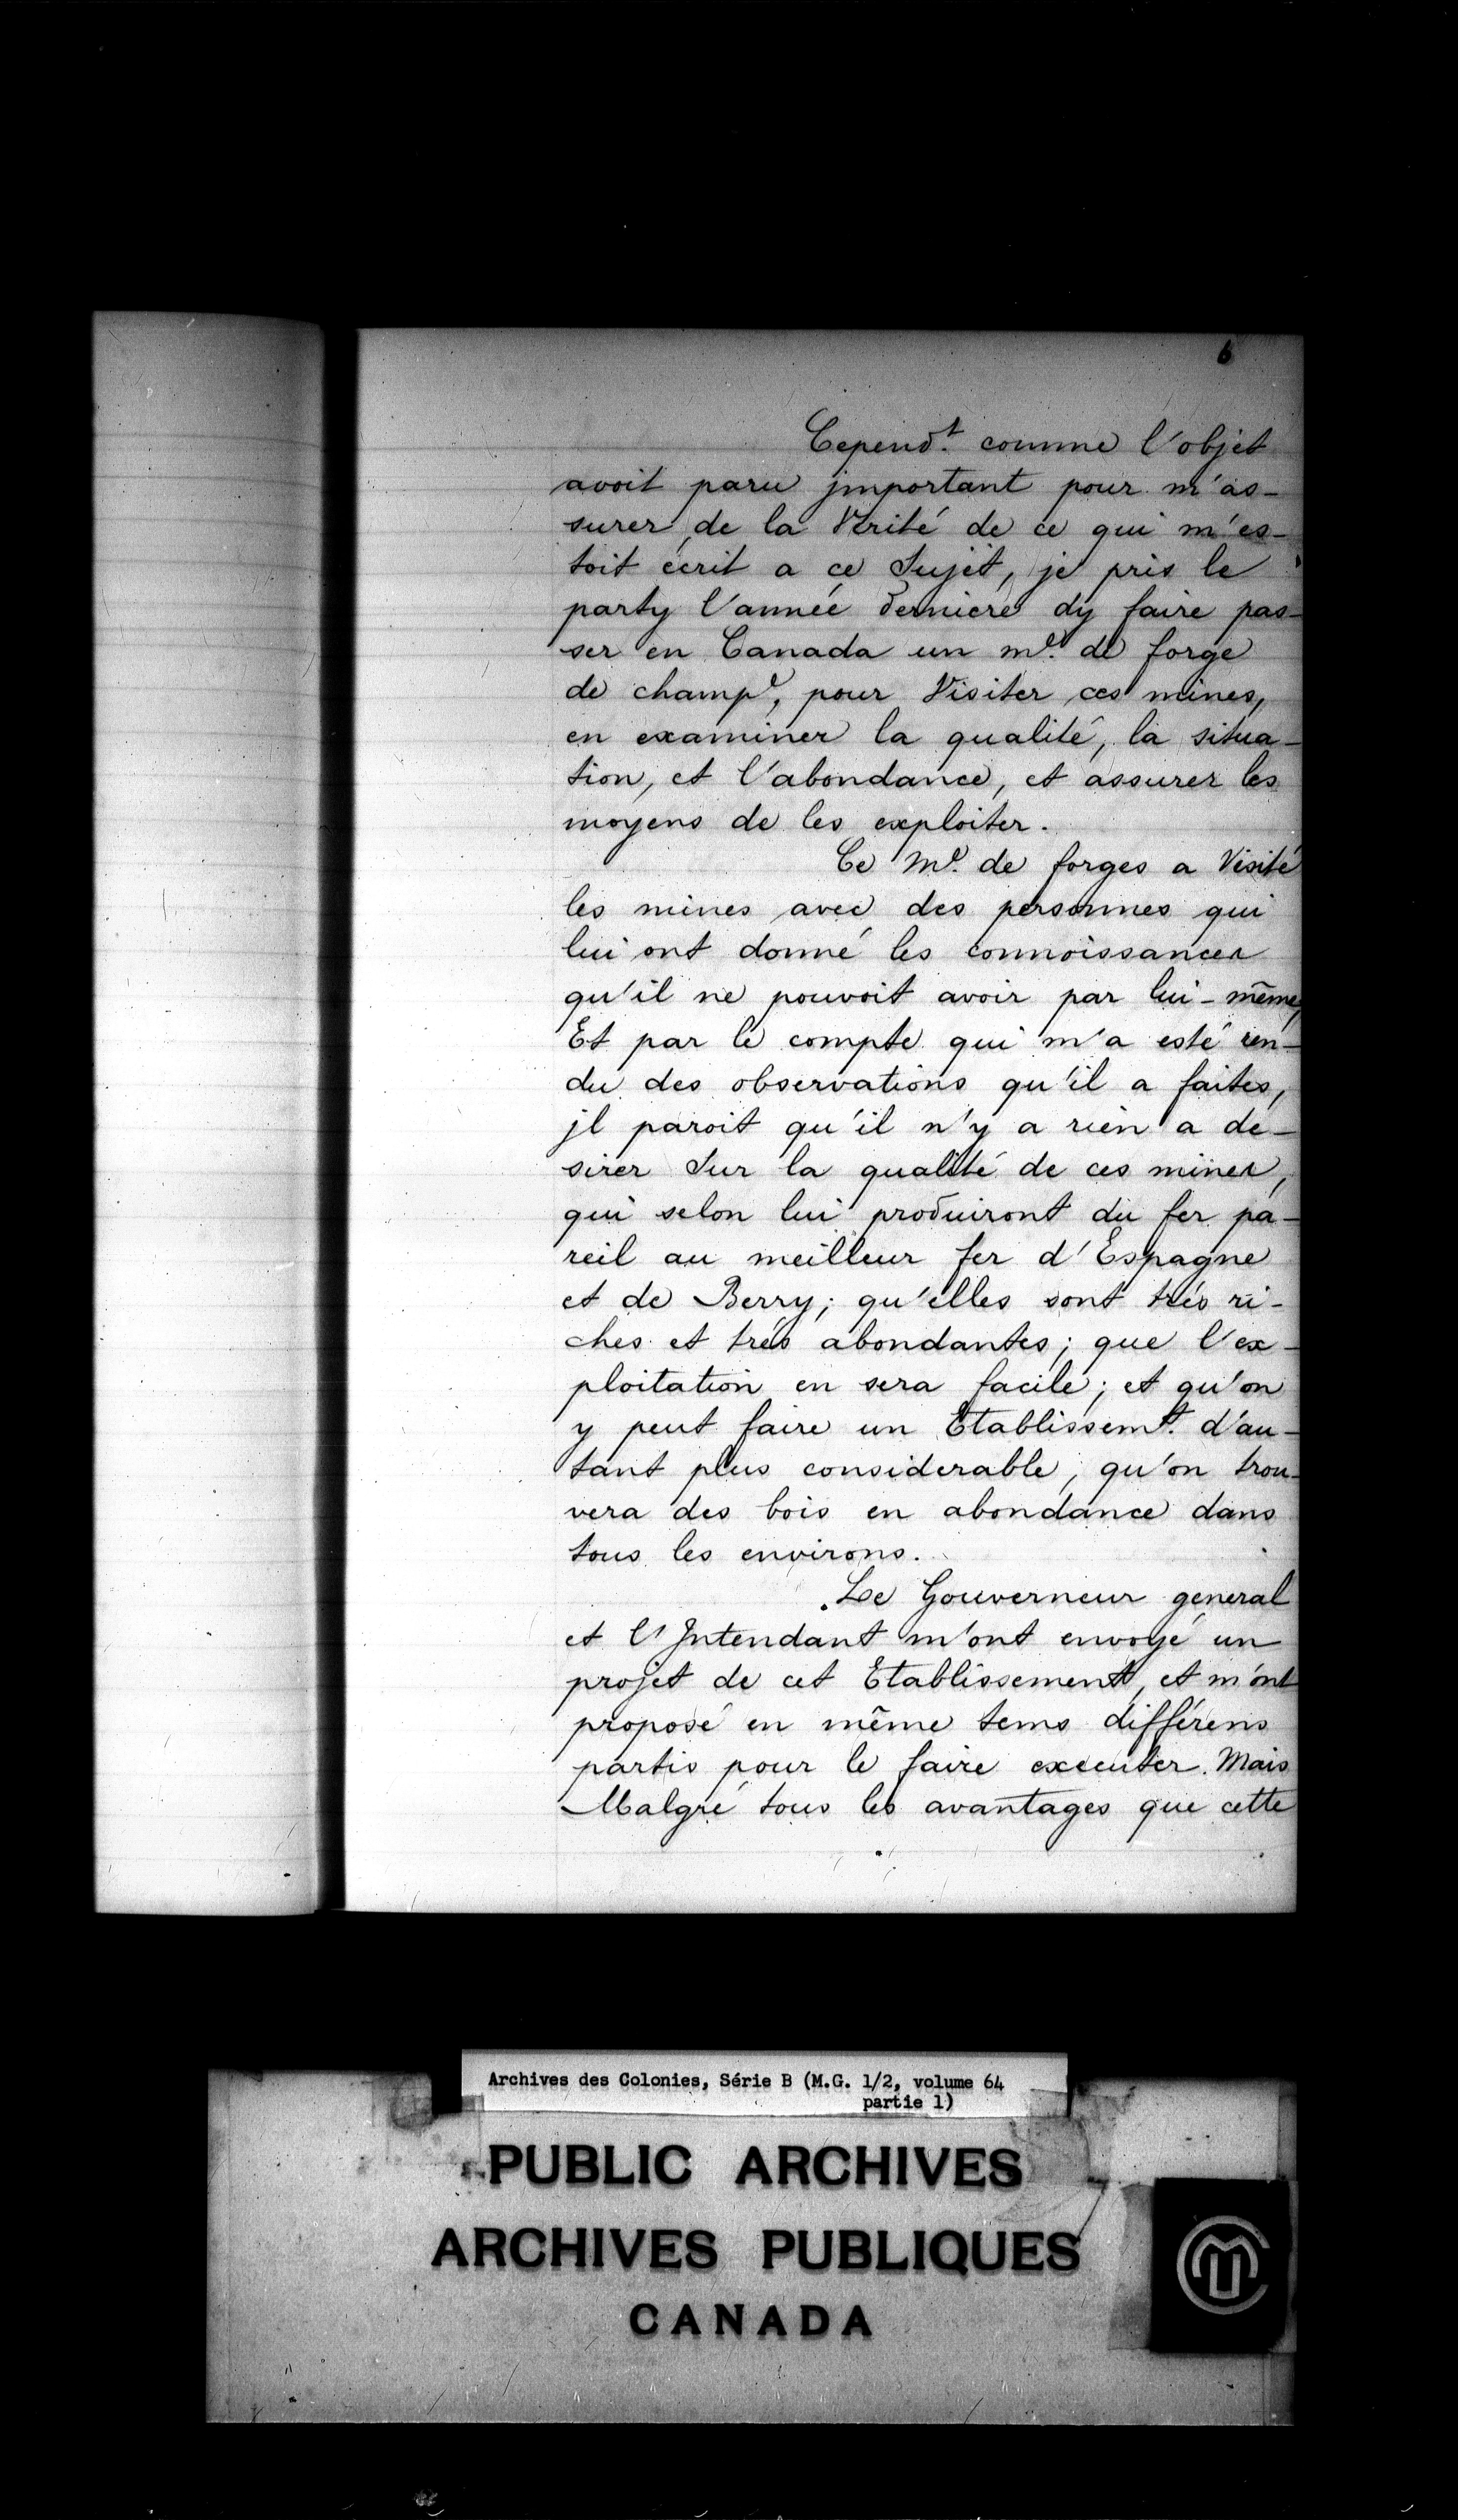 6
Cepend.t comme l'objet
avoit paru jmportant pour m'as-
surer, de la Vérité de ce qui m'es-
toit écrit a ce Sujet, je pris le
party l'année derniere dy faire pas-
ser en Canada un m.e de forge
de champ.e, pour Visiter ces mines,
en examiner la qualité, la situa-
tion, et l'abondance, et assurer les
moyens de les exploiter.
Ce M.e de forges a Visité
les mines avec des personnes qui
lui ont donné les connoissances
qu'il ne pouvoit avoir par lui-même,
Et par le compte qui m'a esté ren-
du des observations qu'il a faites,
jl paroit qu'il n'y a rien a de-
sirer Sur la qualité de ces mines,
qui selon lui produiront du fer pa-
reil au meilleur fer d'Espagne
et de Berry; qu'elles sont trés ri-
ches et trés abondantes; que l'ex-
ploitation en sera facile; et qu'on
y peut faire un Etablissem.t d'au-
tant plus considerable, qu'on trou-
vera des bois en abondance dans
tous les environs.
Le Gouverneur general
et l'Intendant m'ont envoyé un
projet de cet Etablissement, et m'ont
proposé en même tems différens
partis pour le faire executer. Mais
Malgré tous les avantages que cette
Archives des Colonies, Série B (M.G. 1/2, volume 64
partie 1)
PUBLIC ARCHIVES
ARCHIVES PUBLIQUES
CANADA